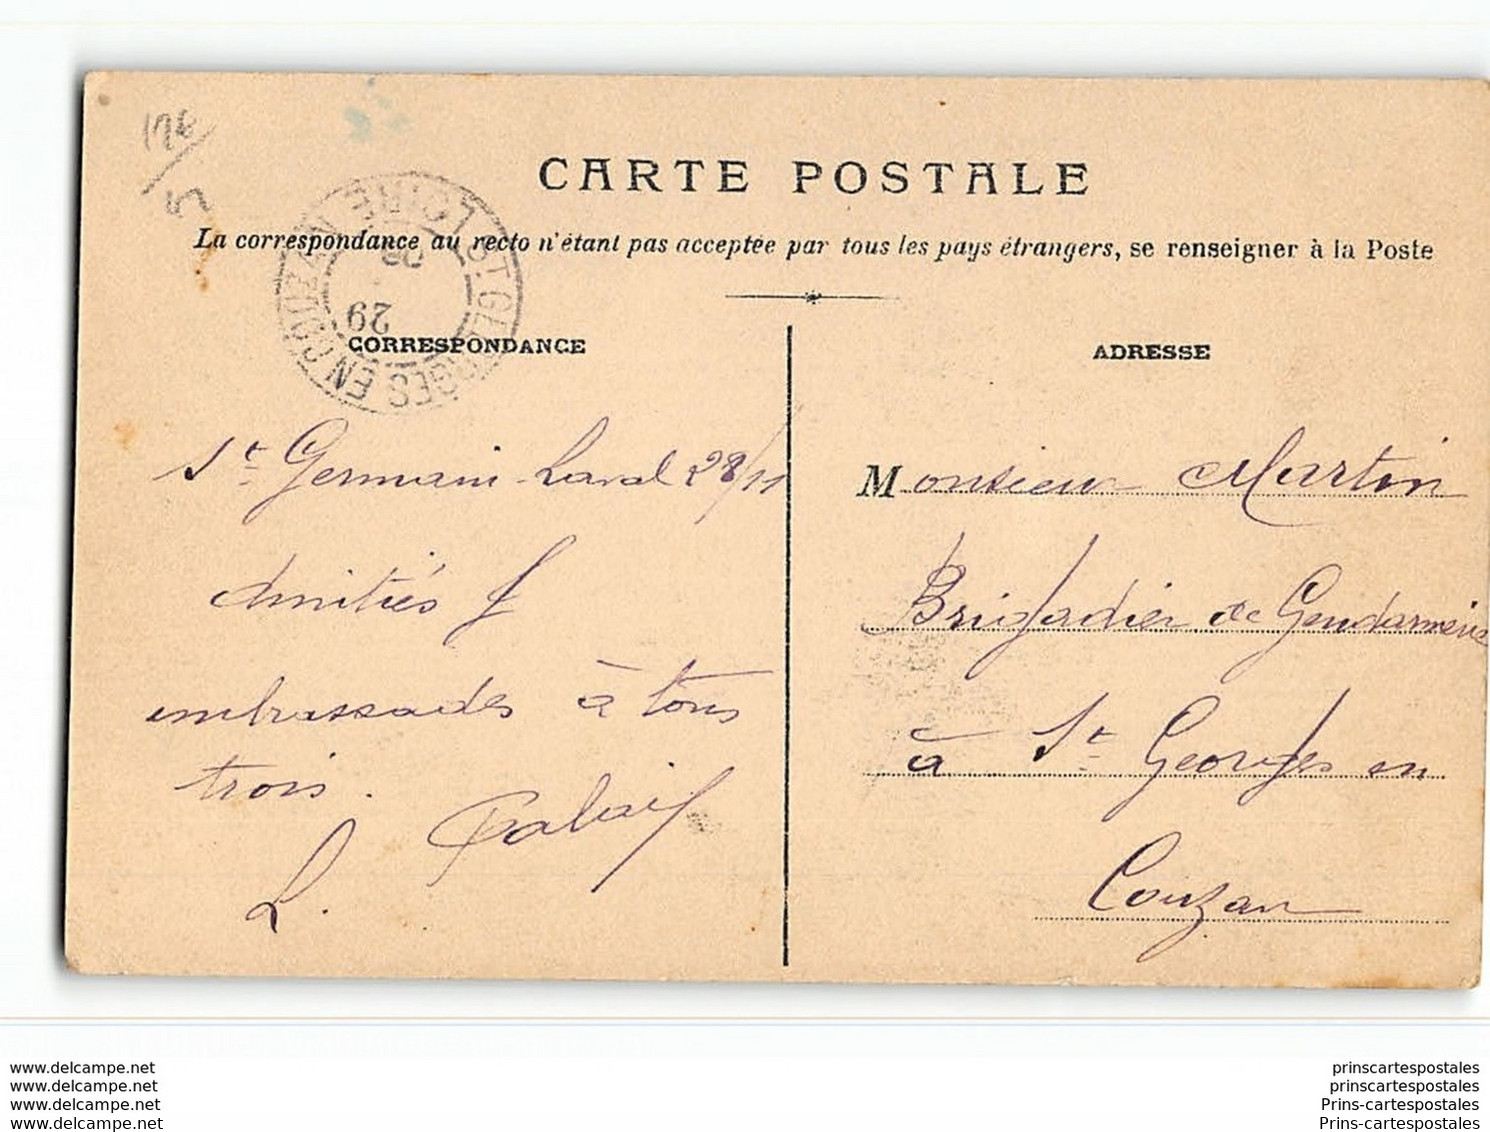 CARTE POSTALE
La correspondance au recto n'étant pas acceptée par tous les pays étrangers, se renseigner à la Poste
ST GEORGES EN COUZAN LOIRE
29
08
CORRESPONDANCE
St Germain Laval 28/11
Amitiés &
embrassades à tous
trois.
L.
ADRESSE
Monsieur Martin
Brigadier de Gendarmerie
à St Georges en
Couzan
www.delcampe.net
www.delcampe.net
www.delcampe.net
www.delcampe.net
prinscartespostales
prinscartespostales
Prins-cartespostales
Prins-cartespostales